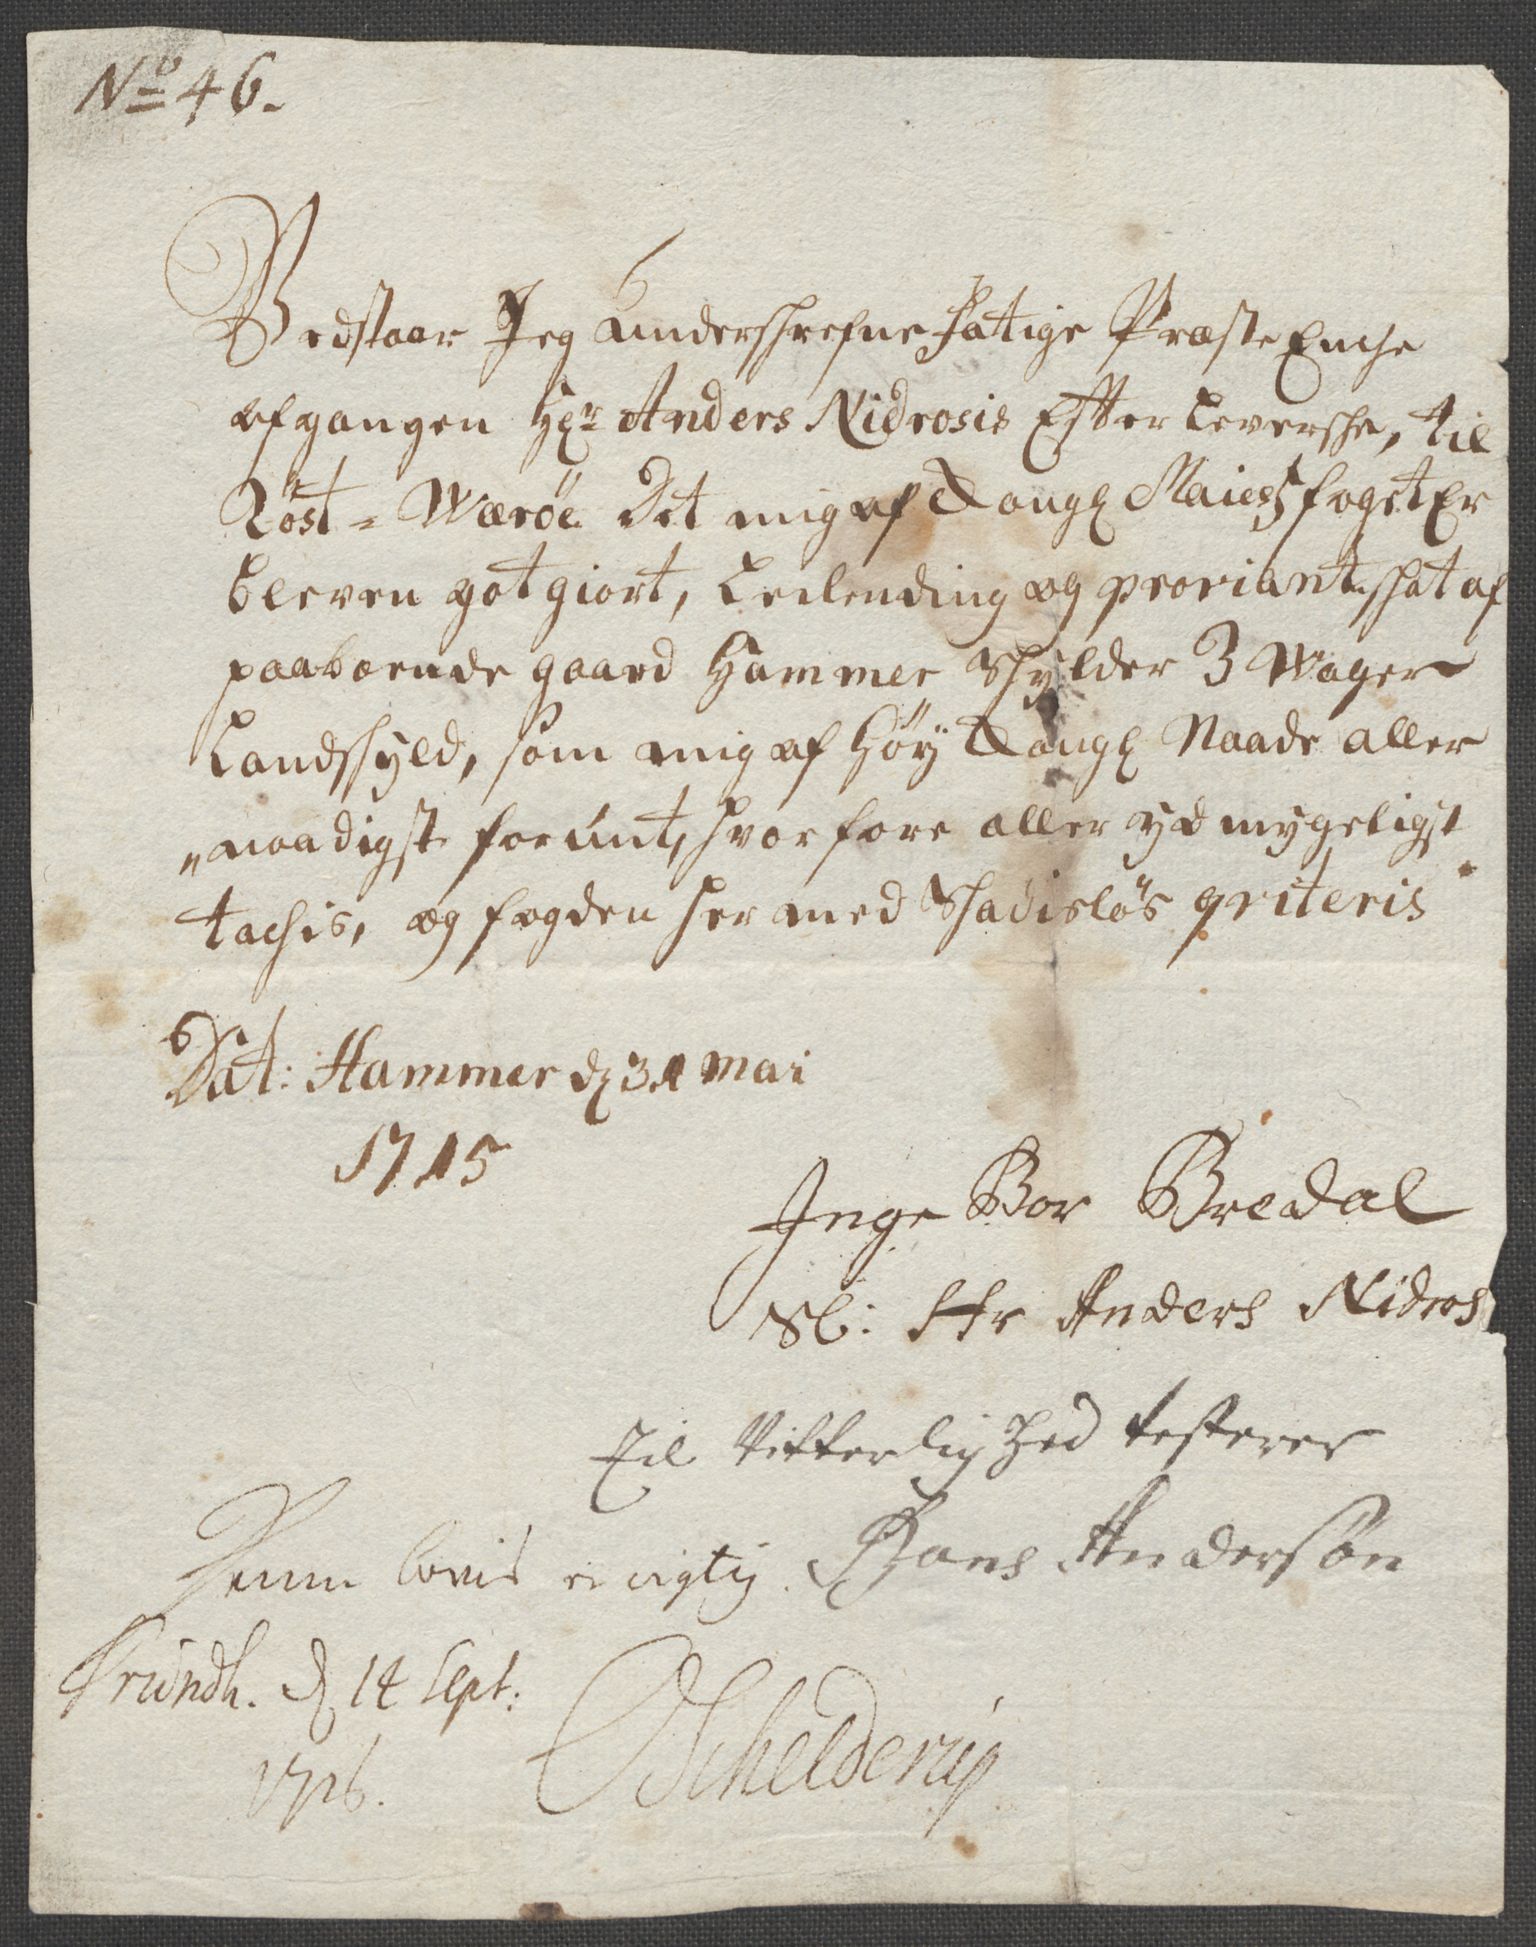 No 46.
Bedstaar Jeg underschrefne Fatige Præste Enche
afgangen Hr: Anders Nidrosis Efter Leversche, til
Röst = Wæröe Det mig af Kongl Maiests foget Er
bleven got giort, Leilending og proviant schat af
paaboende gaard Hammer Schylder 3 Woger
Landschyld, som mig af Höy Kongl Naade aller
naadigst forunt, hvorfore aller ydmygeligst
tachis, og fogden hermed Schadislös qviteris
Dat: Hammer d 31 Mai
1715
Inge Bor Bredal
Sl: Hr Anders Nidros
Til Vitterlighed testerer
Hans Anderson
Denne bevis er rigtig
Trundh. d 14 Sept:
1716.
Schelderup